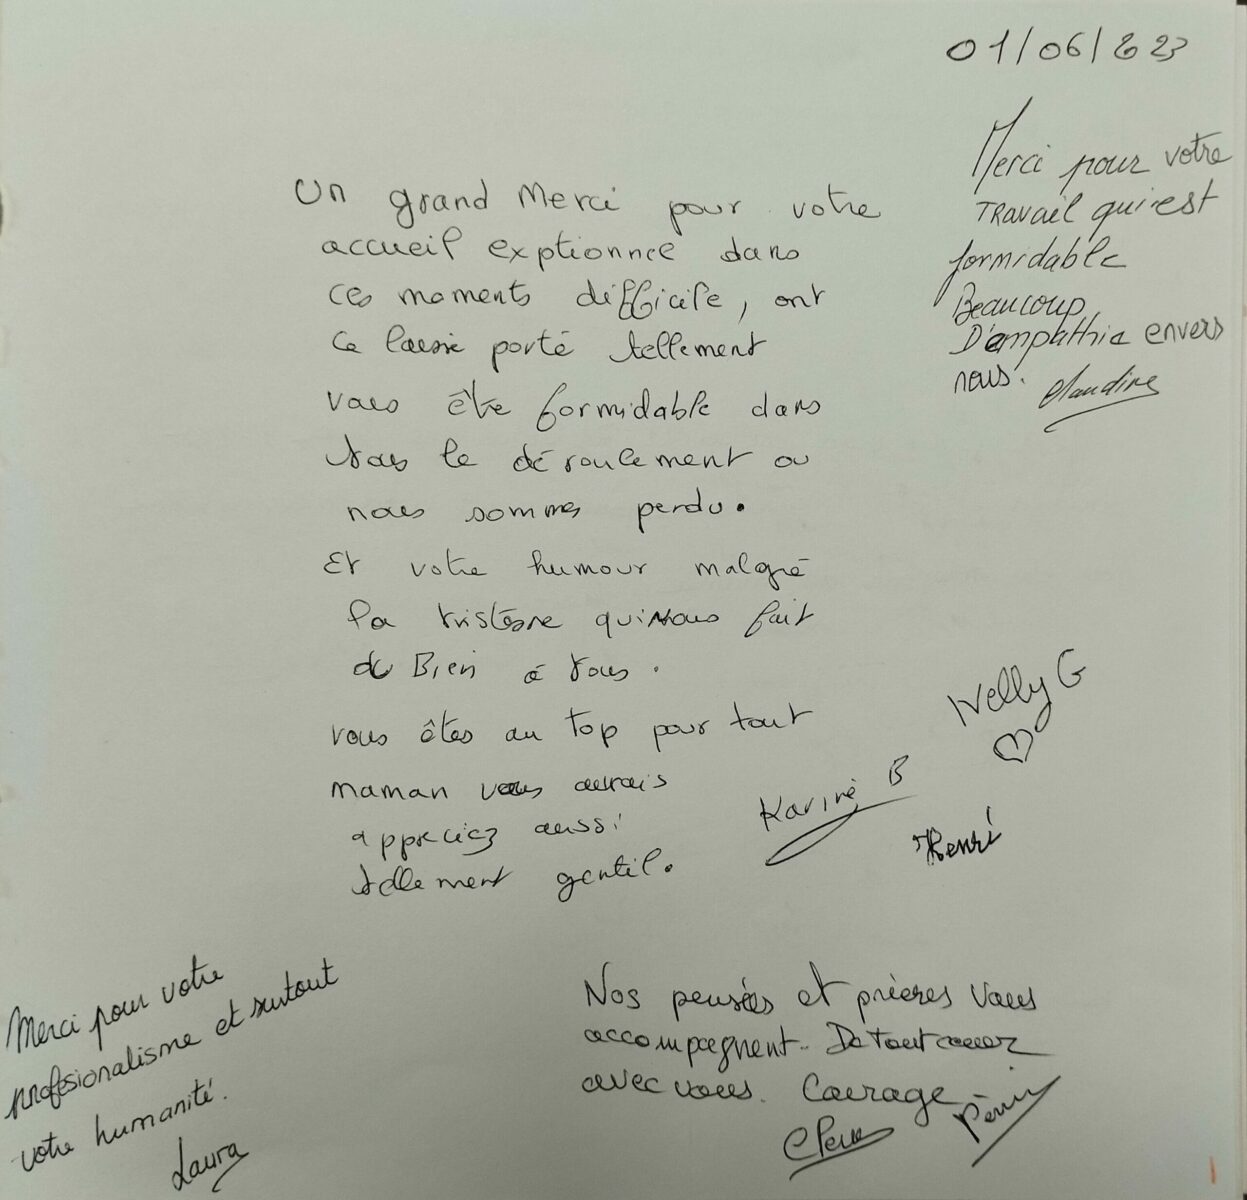 01/06/2023
Un grand Merci pour votre
accueil exptionnce dans
ces moments difficile, ont
ce laisse porté tellement
vous être formidable dans
tous le déroulement ou
nous sommes perdu.
Et votre humour malgré
la tristesse qui nous fait
du Bien à tous.
vous êtes au top pour tout
maman vous aurais
appreciez aussi
tellement gentil.
Merci pour votre
TRavail qui est
formidable
Beaucoup
D'empathie envers
nous! Claudine
Nelly G
Karine B
Henri
Merci pour votre
profesionalisme et surtout
votre humanité.
Laura
Nos pensées et prières vous
accompagnent.. De tout coeur
avec vous. Courage